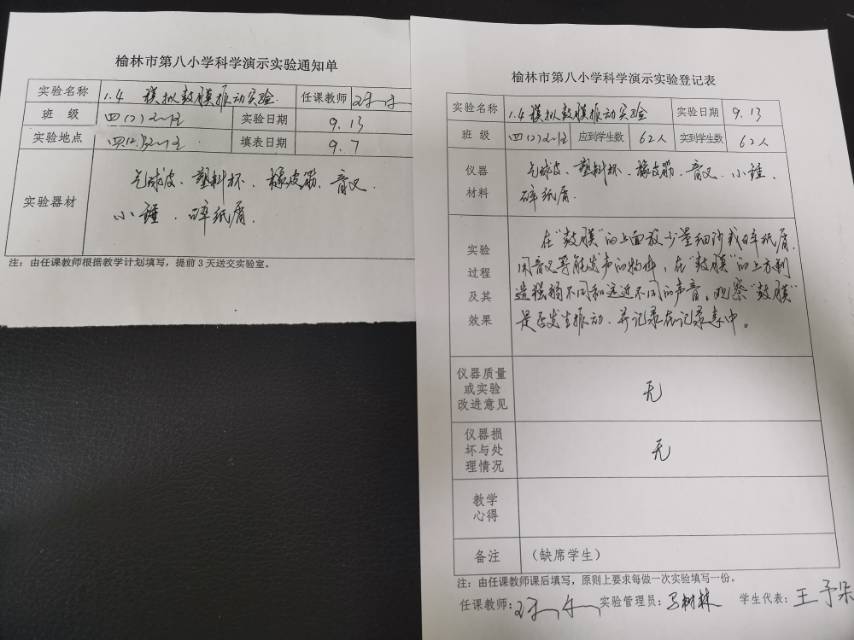 榆林市第八小学科学演示实验通知单
实验名称 1.4 模拟鼓膜振动实验 任课教师
班 级 四(二) 实验日期 9.13
实验地点 填表日期 9.7
实验器材 气球皮、塑料杯、橡皮筋、音叉、
小锤、碎纸屑.
注:由任课教师根据教学计划填写,提前3天送交实验室。
榆林市第八小学科学演示实验登记表
实验名称 1.4模拟鼓膜振动实验 实验日期 9.13
班 级 应到学生数 62人 实到学生数 62人
仪器
材料
气球皮、塑料杯、橡皮筋、音叉、小锤、
碎纸屑.
实验
过程
及其
效果
在“鼓膜”的上面放少量细沙或碎纸屑.
用音叉等能发声的物体,在“鼓膜”的上方制
造强弱不同和远近不同的声音。观察“鼓膜”
是否发生振动.并记录在记录表中。
仪器质量
或实验
改进意见
无
仪器损
坏与处
理情况
无
教学
心得
备注 (缺席学生)
注:由任课教师课后填写,原则上要求每做一次实验填写一份。
任课教师: 实验管理员:马树林 学生代表:王予朵